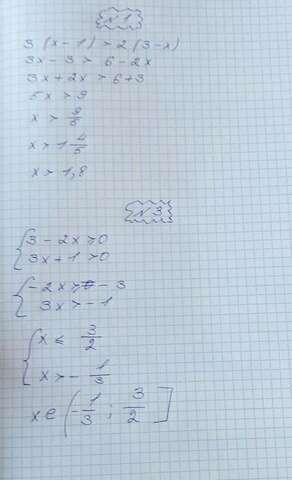 №1
3(x-1)>2(3-x)
3x-3>6-2x
3x+2x>6+3
5x>9
x>9/5
x>1 4/5
x>1,8
№3
{3-2x⩾0
3x+1>0
{-2x⩾-3
3x>-1
{x⩽3/2
x>-1/3
x∈(-1/3; 3/2]